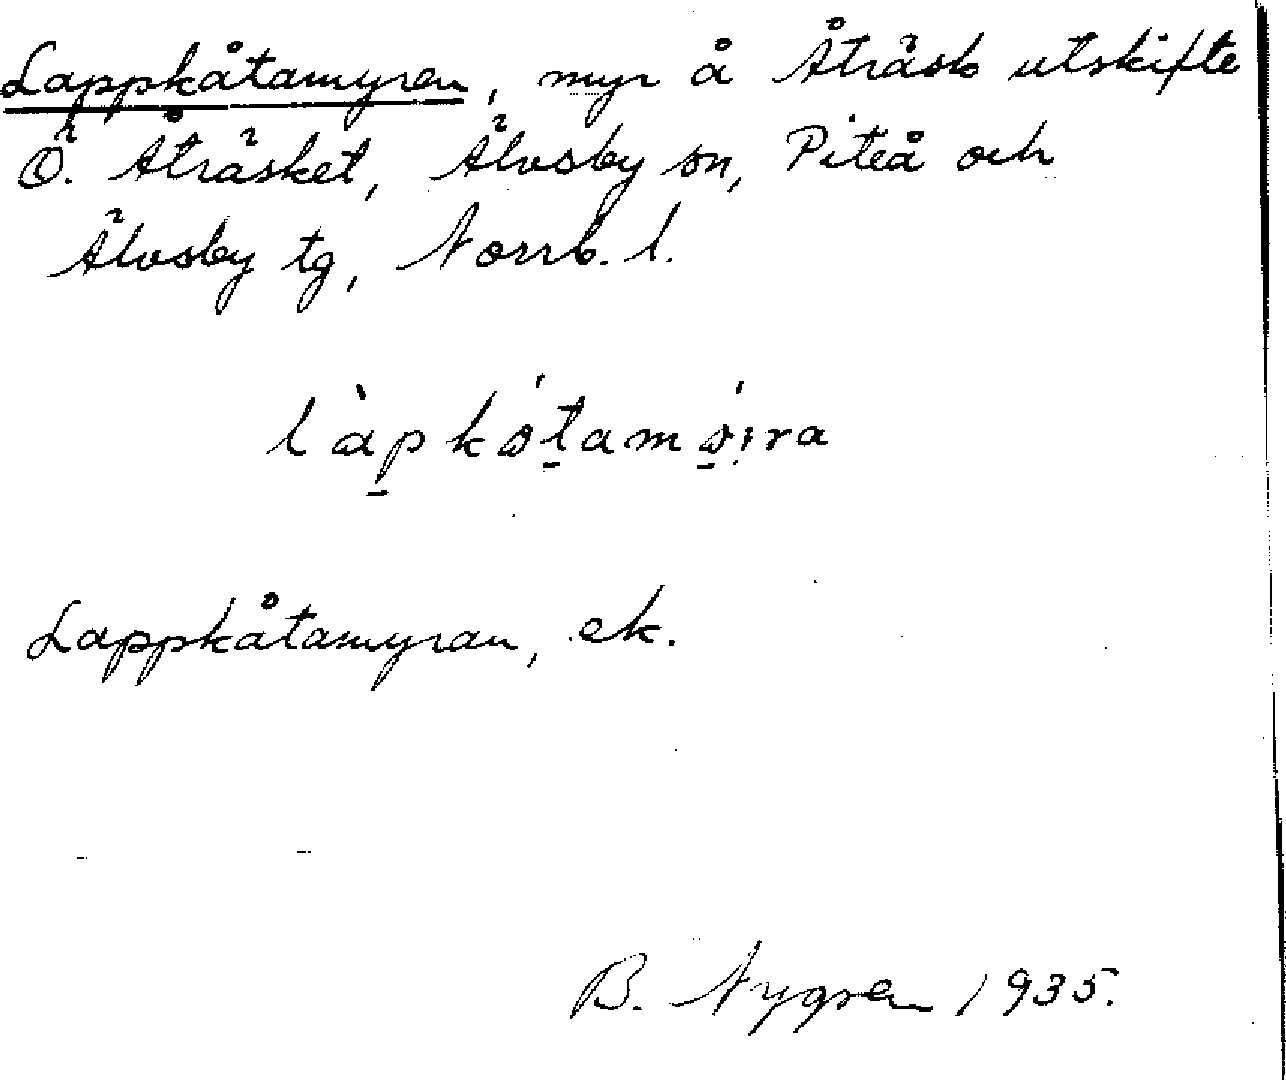 Lappkåtamyren, myr å Åträsk utskifte
Ö. Åträsket, Älvsby sn, Piteå och
Älvsby tg, Norrb. l.
Lappkåtamyran, ek.
B. Nygren 1935.